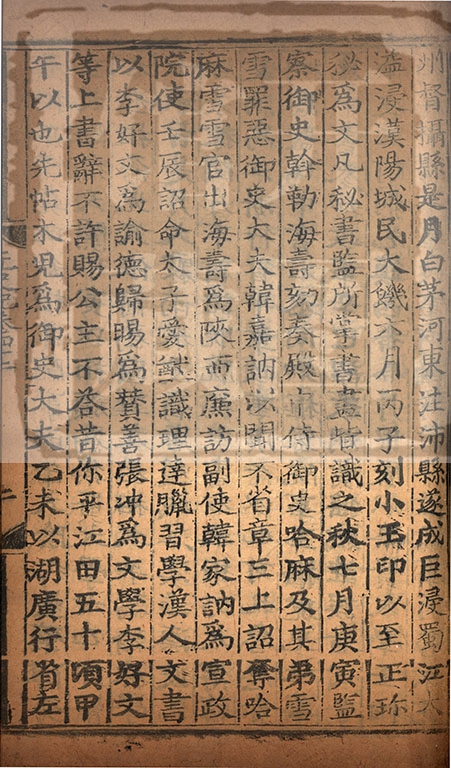 州督攝縣是月白茅河東注沛縣遂成巨浸蜀江大
溢浸漢陽城民大饑六月丙子刻小玉印以至正珎
秘爲文凡秘書監所掌書畫皆識之秋七月庚寅監
察御史斡勒海壽劾奏殿中侍御史哈麻及其弟雪
雪罪惡御史大夫韓嘉訥以聞不省章三上詔奪哈
麻雪雪官出海壽爲陝西廉訪副使韓家訥爲宣政
院使壬辰詔命太子愛猷識理達臘習學漢人文書
以李好文爲諭德歸暘爲贊善張冲爲文學李好文
等上書辭不許賜公主不荅昔你平江田五十頃甲
午以也先帖木児爲御史大夫乙未以湖廣行省左